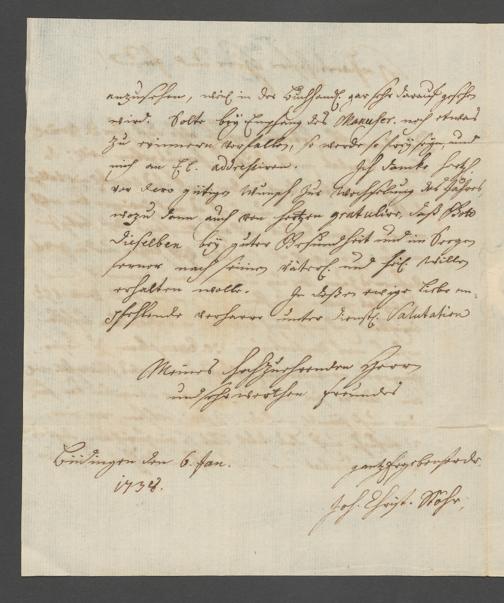 anzusehen, weil in der Buchhandl. gar sehr darauf gesehen
wird. Solte bey Empfang des Manuscr. noch etwas
zu erinnern vorfallen, so werde so frey seyn, und
mich an Ew. addressiren. Ich dancke hertzl.
vor dero gütigen Wunsch zur des Jahres,
wozu dann auch von Hertzen gratulire, daß Gott
dieselben bey guter Gesundheit und in Seegen
ferner nach seinem Väterl. und Willen
erhalten wolle. In deßen ewige Liebe em-
pfehlende verharre unter dienstl. Salutation
Meines Hochzuehrenden Herrn
und sehr werthen Freundes
Büdingen den 6. Jan.
1738.
gantz Ergebenster
Joh. Christ. Stöhr,